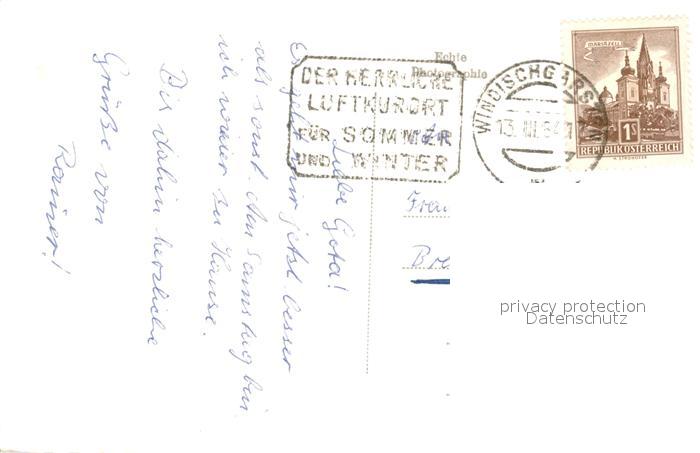 Echte
Photographie
DER HERRLICHE
LUFTKURORT
FÜR SOMMER
UND WINTER
WINDISCHGARSTEN
13. III. 64
MARIAZELL
1S
REPUBLIK ÖSTERREICH
Liebe Gota!
Es geht mir jetzt besser
als sonst. Am Samstag bin
ich wieder zu Hause.
Bis dahin herzliche
Grüße von
Rainer!
privacy protection
Datenschutz